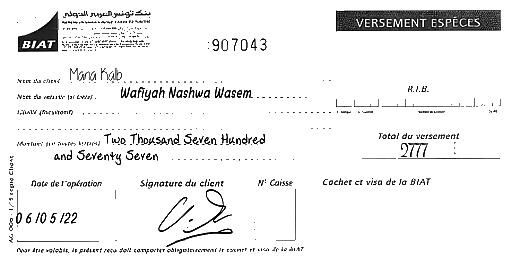 بنك تونس العربي الدولي
BIAT
VERSEMENT ESPÈCES
:907043
Nom du client Maria Kalb
Nom du verseur (si tiers) Wafiyah Nashwa Wasem
R.I.B.
Montant (en toutes lettres) Two Thousand Seven Hundred
and Seventy Seven
Total du versement
2777
Date de l'opération
Signature du client
N° Caisse
Cachet et visa de la BIAT
06/05/22
Pour être valable, le présent reçu doit comporter obligatoirement le cachet et visa de la BIAT